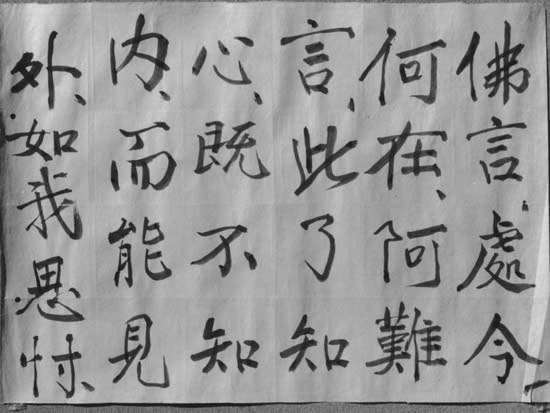 佛言、處今
何在、阿難
言、此了知
心、既不知
内、而能見
外、如我思忖、